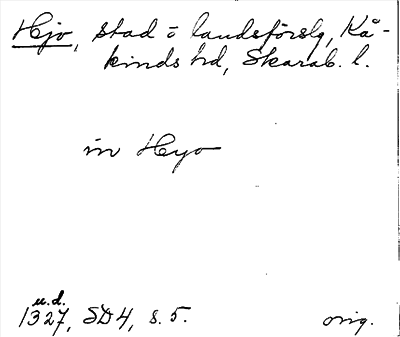 Hjo, stad o landsförslg, Kå-
kinds hd, Skarab. l.
in Hyo
u.d.
1327, SD4, s. 5.
orig.